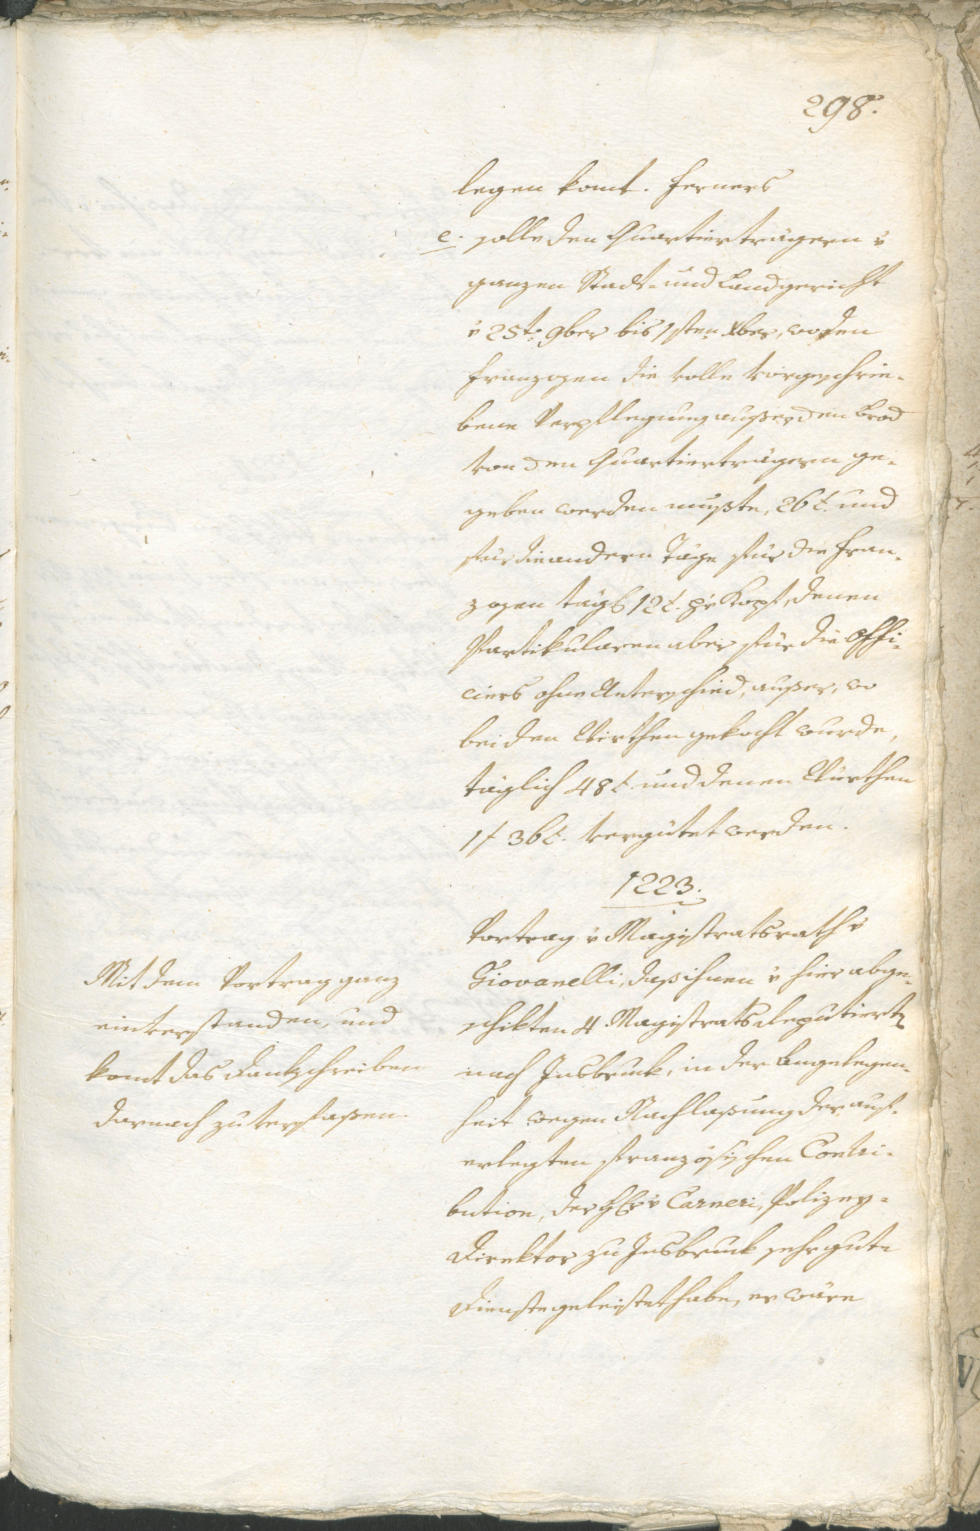 298.
legen komt. Ferners
e. solle den Quartierträgern v
ganzen Stadt- und Landgericht
v 25t. 9ber bis 1sten Xber, wo den
Franzosen die volle vorgeschrie-
bene Verpflegung außer den Brod
von den Quartierträgern ge-
geben werden mußte, 26 x. und
für die andern Täge für die Fran-
zosen tägl 12 x. pr Kopf, denen
Partikularen aber für die Offi-
ciers ohne Unterschied, außer, wo
bei den Wirthen gekocht wurde,
täglich 48 x. und denen Würthen
1 f 36 x. vergütet werden.
1223.
Vortrag v Magistratsrath v
Giovanelli, daß ihnen v hier abge-
schikten 4 Magistratsdeputierten
nach Insbruck, in der Angelegen-
heit wegen Nachlaßung der auf-
erlegten französischen Contri-
bution, der Hr v Carneri, Polizey-
Direktor zu Insbruck sehr gute
Dienste geleistet habe, er wäre
Mit dem Vortrag ganz
einverstanden, und
komt das Dankschreiben
darnach zu verfaßen.